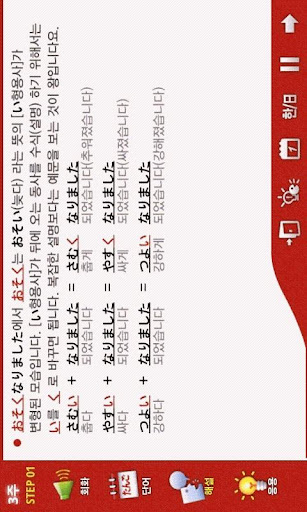 3주
STEP 01
회화
たんご
단어
해설
응용
● おそくなりました에서 おそく는 おそい(늦다) 라는 뜻의 [い형용사]가
변형된 모습입니다. [い형용사]가 뒤에 오는 동사를 수식(설명) 하기 위해서는
い를 く 로 바꾸면 됩니다. 복잡한 설명보다는 예문을 보는 것이 왕입니다요.
さむい + なりました = さむく なりました
춥다 되었습니다 춥게 되었습니다(추워졌습니다)
やすい + なりました = やすく なりました
싸다 되었습니다 싸게 되었습니다(싸졌습니다)
つよい + なりました = つよく なりました
강하다 되었습니다 강하게 되었습니다(강해졌습니다)
7
한/日